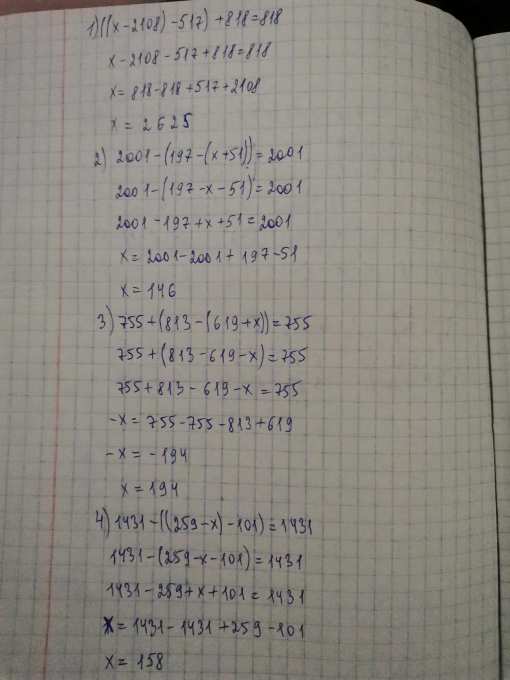 1) ((x-2108)-517)+818=818
x-2108-517+818=818
x=818-818+517+2108
x=2625
2) 2001-(197-(x+51))=2001
2001-(197-x-51)=2001
2001-197+x+51=2001
x=2001-2001+197-51
x=146
3) 755+(813-(619+x))=755
755+(813-619-x)=755
755+813-619-x=755
-x=755-755-813+619
-x=-194
x=194
4) 1431-((259-x)-101)=1431
1431-(259-x-101)=1431
1431-259+x+101=1431
x=1431-1431+259-101
x=158